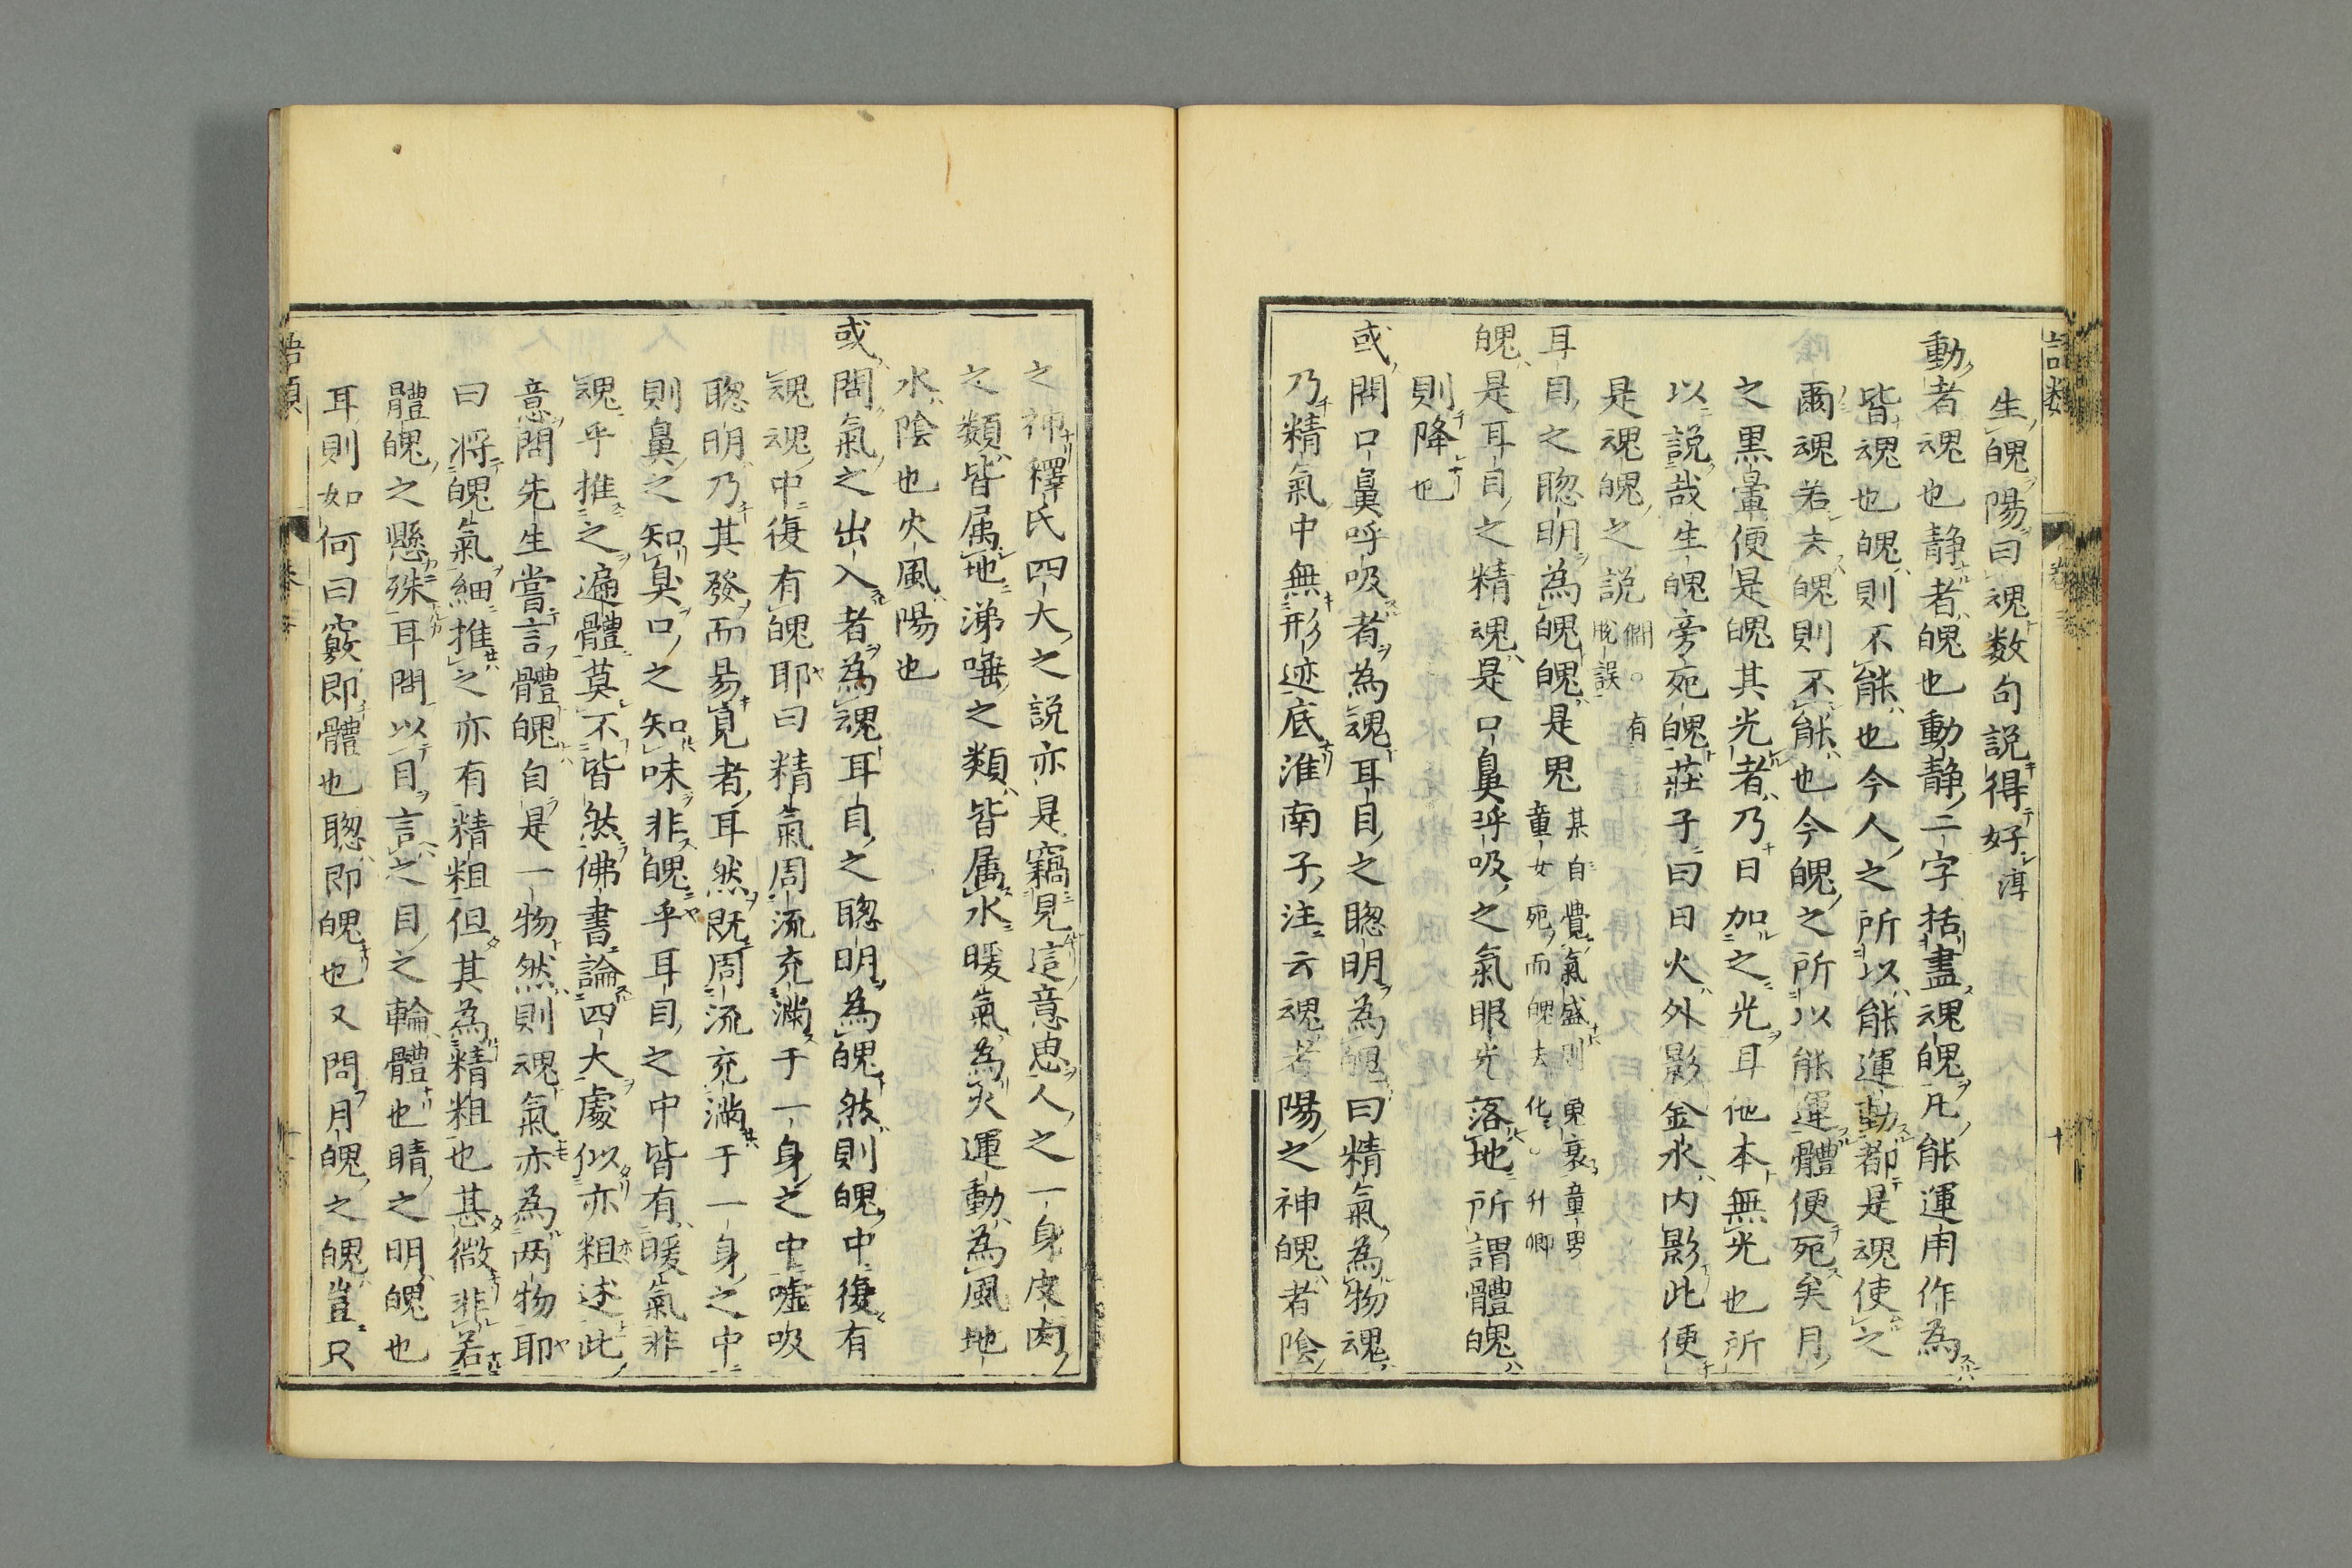 生魄陽曰魂数句説得好淳
動者魂也静者魄也動静二字括盡魂魄凡能運用作為
皆魂也魄則不能也今人之所以能運動都是魂使之
爾魂若去魄則不能也今魄之所以能運體便死矣月
之黒暈便是魄其光者乃日加之光耳他本無光也所
以説哉生魄旁死魄莊子曰日火外影金水内影此便
是魂魄之説僩。有脱誤
耳目之聡明為魄魄是鬼某自覺氣盛則魄衰童男童女死而魄去化。升卿
魄是耳目之精魂是口鼻呼吸之氣眼光落地所謂體魄
則降也
或問口鼻呼吸者為魂耳目之聡明為魄曰精氣為物魂
乃精氣中無形迹底淮南子注云魂者陽之神魄者陰
之神釋氏四大之説亦是竊見這意思人之一身皮肉
之類皆属地涕唾之類皆属水暖氣為火運動為風地
水陰也火風陽也
或問氣之出入者為魂耳目之聡明為魄然則魄中復有
魂魂中復有魄耶曰精氣周流充滿于一身之中嘘吸
聡明乃其發而易見者耳然既周流充滿于一身之中
則鼻之知臭口之知味非魄乎耳目之中皆有暖氣非
魂乎推之遍體莫不皆然佛書論四大處似亦粗述此
意問先生嘗言體魄自是一物然則魂氣亦為两物耶
曰将魄氣細推之亦有精粗但其為精粗也甚微非若
體魄之懸殊耳問以目言之目之輪體也睛之明魄也
耳則如何曰竅即體也聡即魄也又問月魄之魄豈只
語類